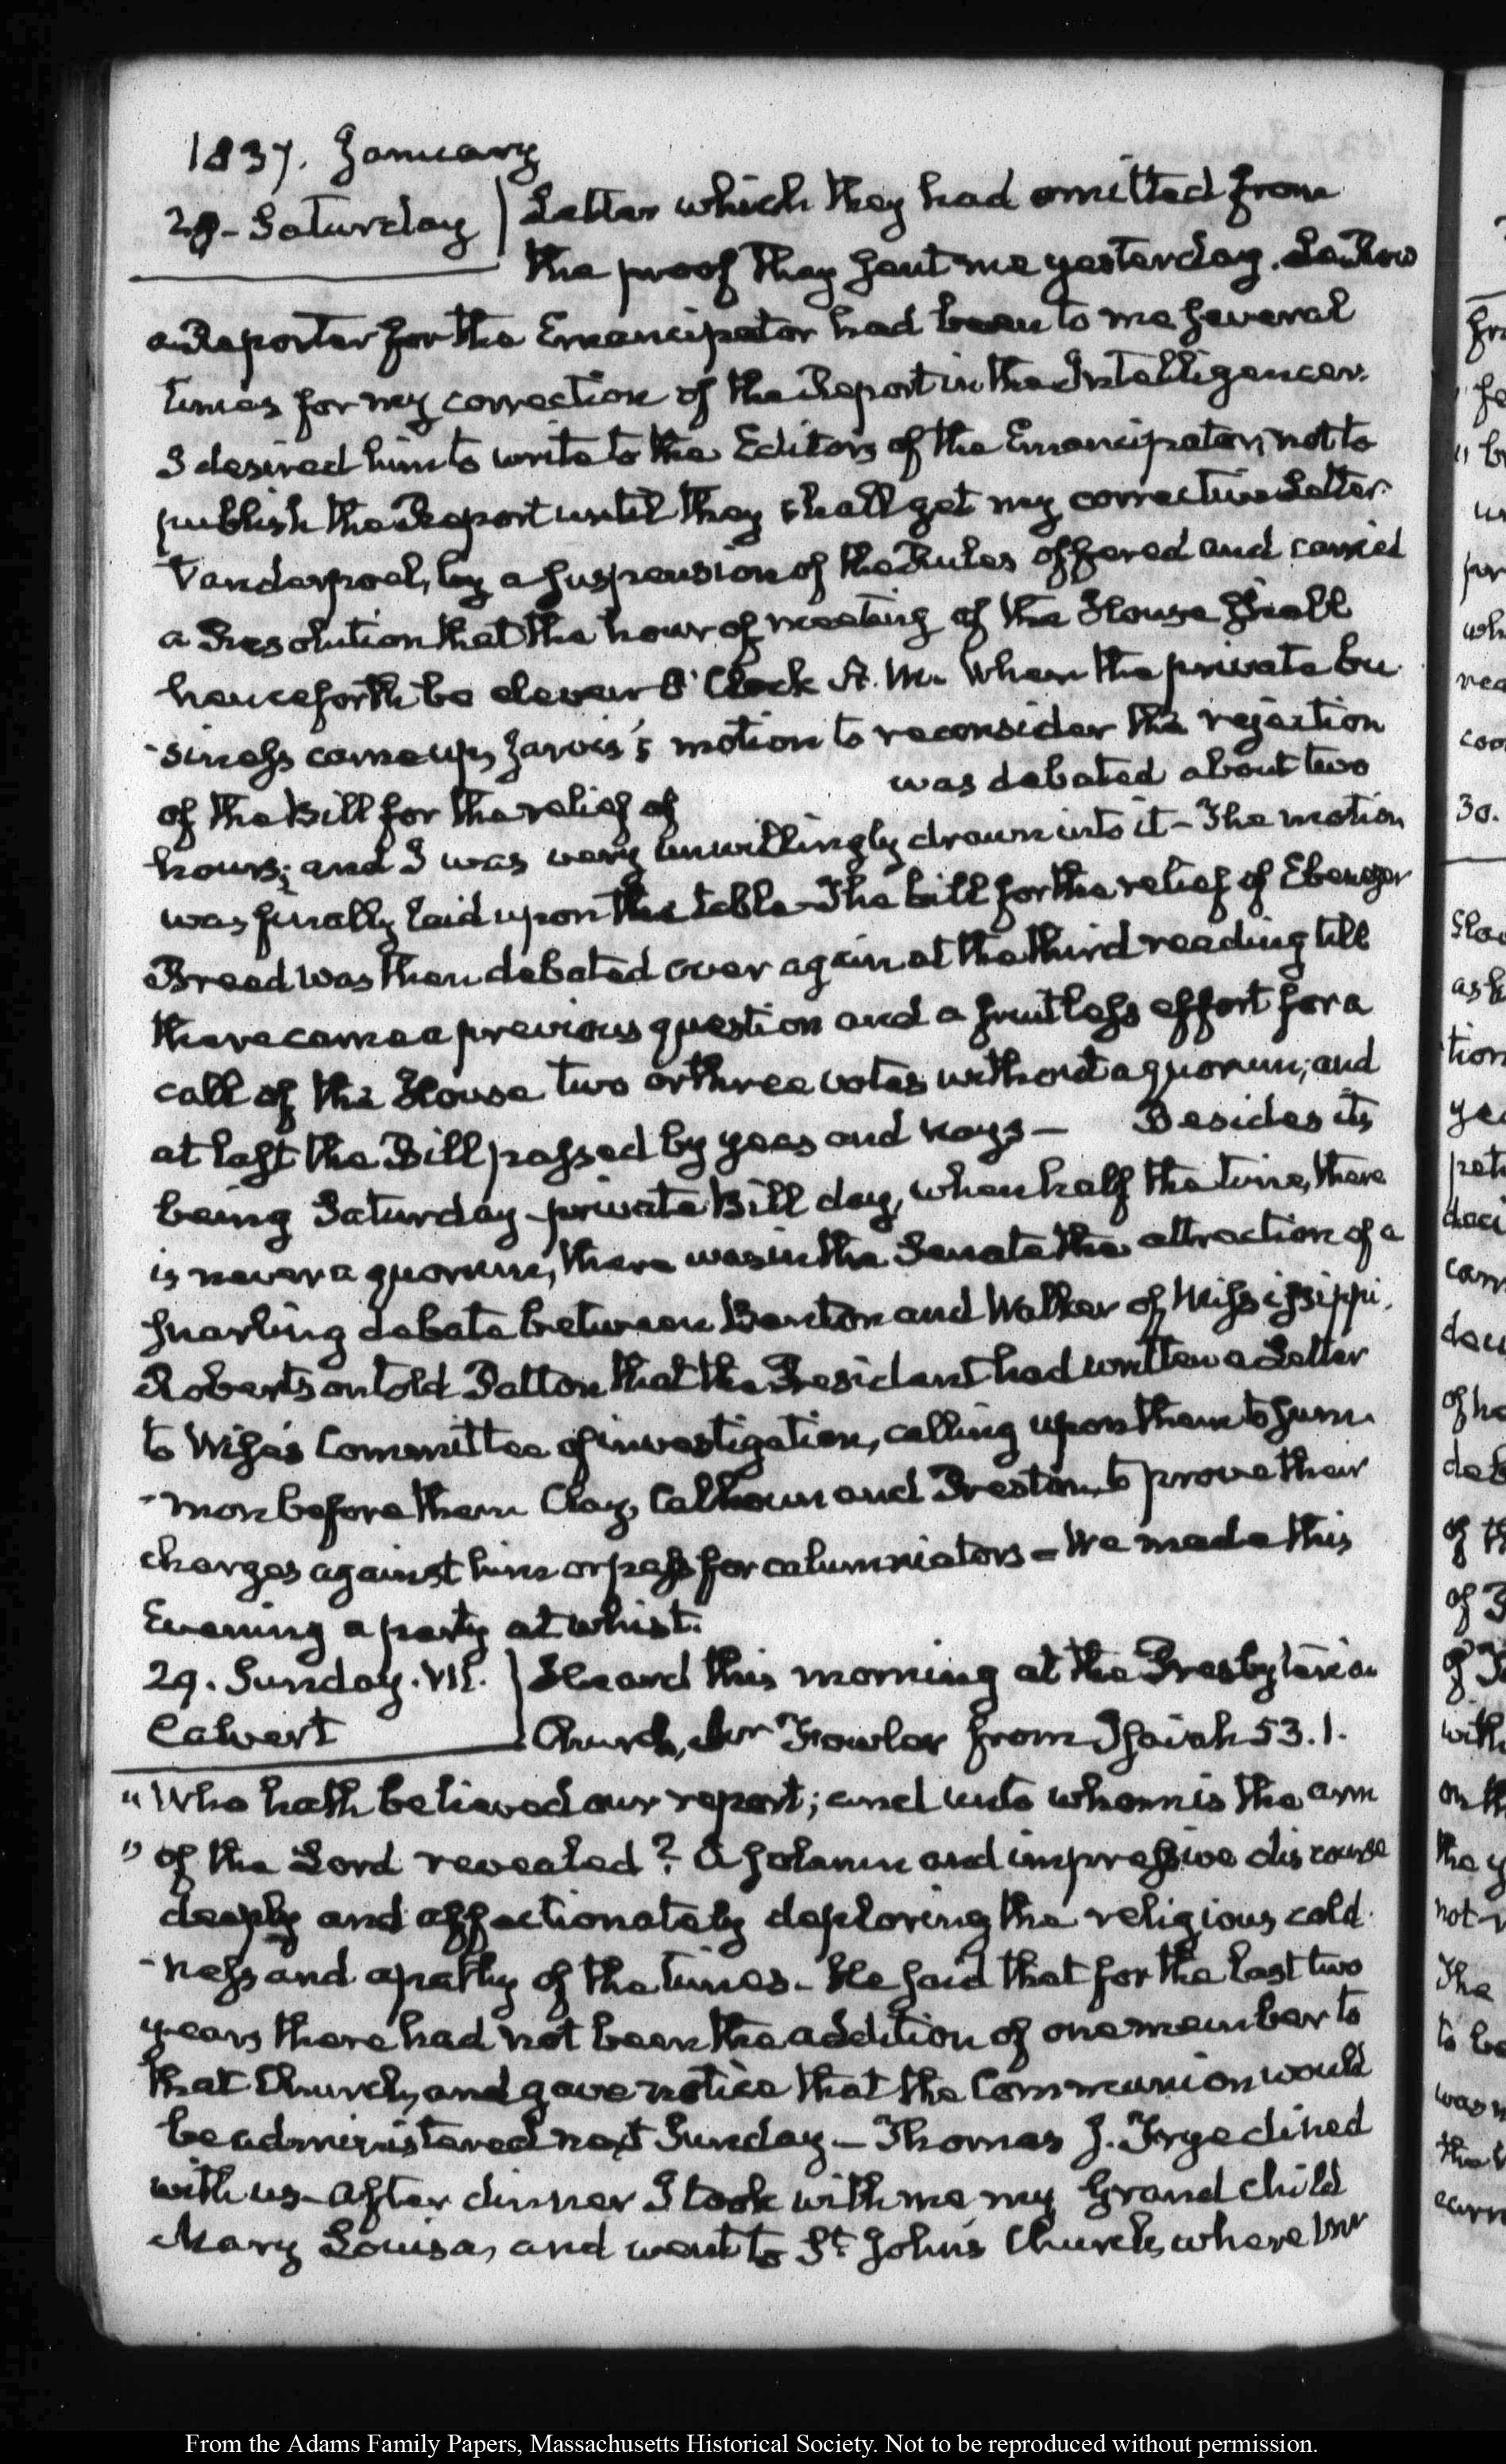 1837. January
28 - Saturday
Letter which they had omitted from
the proof they sent me yesterday.
a Reporter for the Emancipator had been to me several
times for my correction of the Report in the Intelligencer.
I desired him to write to the Editors of the Emancipator, not to
publish the Report until they shall get my corrective Letter.
Vanderpoel, by a suspension of the Rules offered and carried
a Resolution that the hour of meeting of the House shall
henceforth be eleven O'Clock A. M. When the private bu
-siness came up, Jarvis's motion to reconsider the rejection
of the Bill for the relief of was debated about two
hours; and I was very unwillingly drawn into it - The motion
was finally laid upon the table - The bill for the relief of Ebenezer
Breed was then debated over again at the third reading till
there came a previous question and a fruitless effort for a
call of the House two or three votes without a quorum; and
at last the Bill passed by yeas and nays - Besides its
being Saturday - private Bill day, when half the time, there
is never a quorum, there was in the Senate the attraction of a
snarling debate between Benton and Walker of Mississippi.
Robertson told Patton that the President had written a Letter
to Wise's Committee of investigation, calling upon them to sum
-mon before them Clay, Calhoun and Preston, to prove their
charges against him or pass for calumniators - We made this
Evening a party at whist.
29. Sunday. VII.
Calvert
Heard this morning at the Presbyterian
Church, Mr Fowler from Isaiah 53. 1.
"Who hath believed our report; and unto whom is the arm
" of the Lord revealed? A solemn and impressive discourse
deeply and affectionately deploring the religious cold
-ness and apathy of the times - He said that for the last two
years there had not been the addition of one member to
that Church, and gave notice that the Communion would
be administered next Sunday - Thomas J. Frye dined
with us - After dinner I took with me my Grand child
Mary Louisa, and went to St. John's Church, where Mr
From the Adams Family Papers, Massachusetts Historical Society. Not to be reproduced without permission.